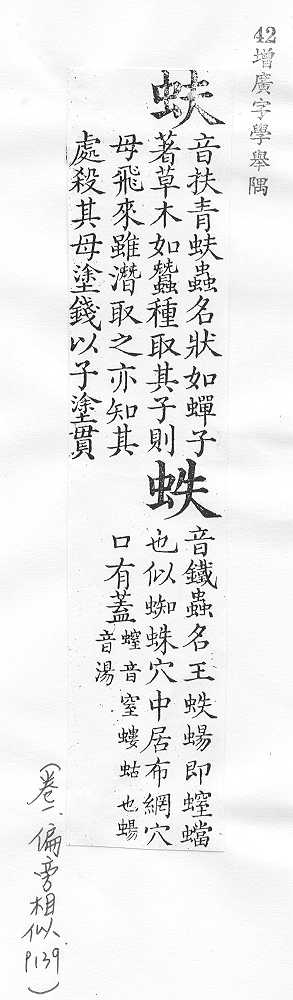 42增廣字學舉隅
蚨
音扶青蚨蟲名狀如蟬子
著草木如蠶種取其子則
母飛來雖潛取之亦知其
處殺其母塗錢以子塗貫
蛈
音鐵蟲名王蛈蜴即螲蟷
也似蜘蛛穴中居布網穴
口有蓋
螲音窒螻蛄也蜴
音湯
(卷一、偏旁相似 P139)